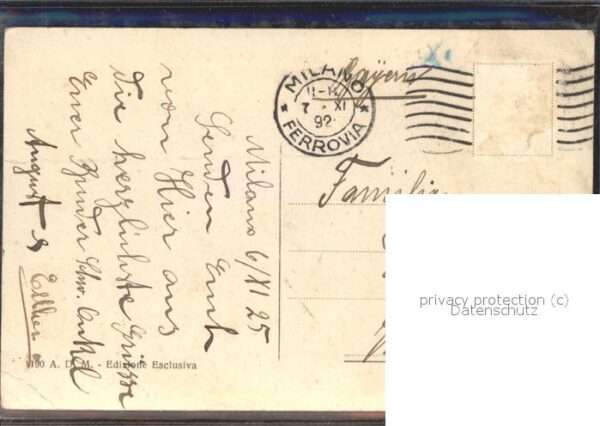 Milano 6/XI 25
Senden Euch
von Hier aus
die herzlichste Grüsse
Euer Bruder Schw. Onkel
August &
Bayern
MILANO
7 · XI
92
FERROVIA
Familie
1100 A. D. M. - Edizione Esclusiva
privacy protection (c)
Datenschutz